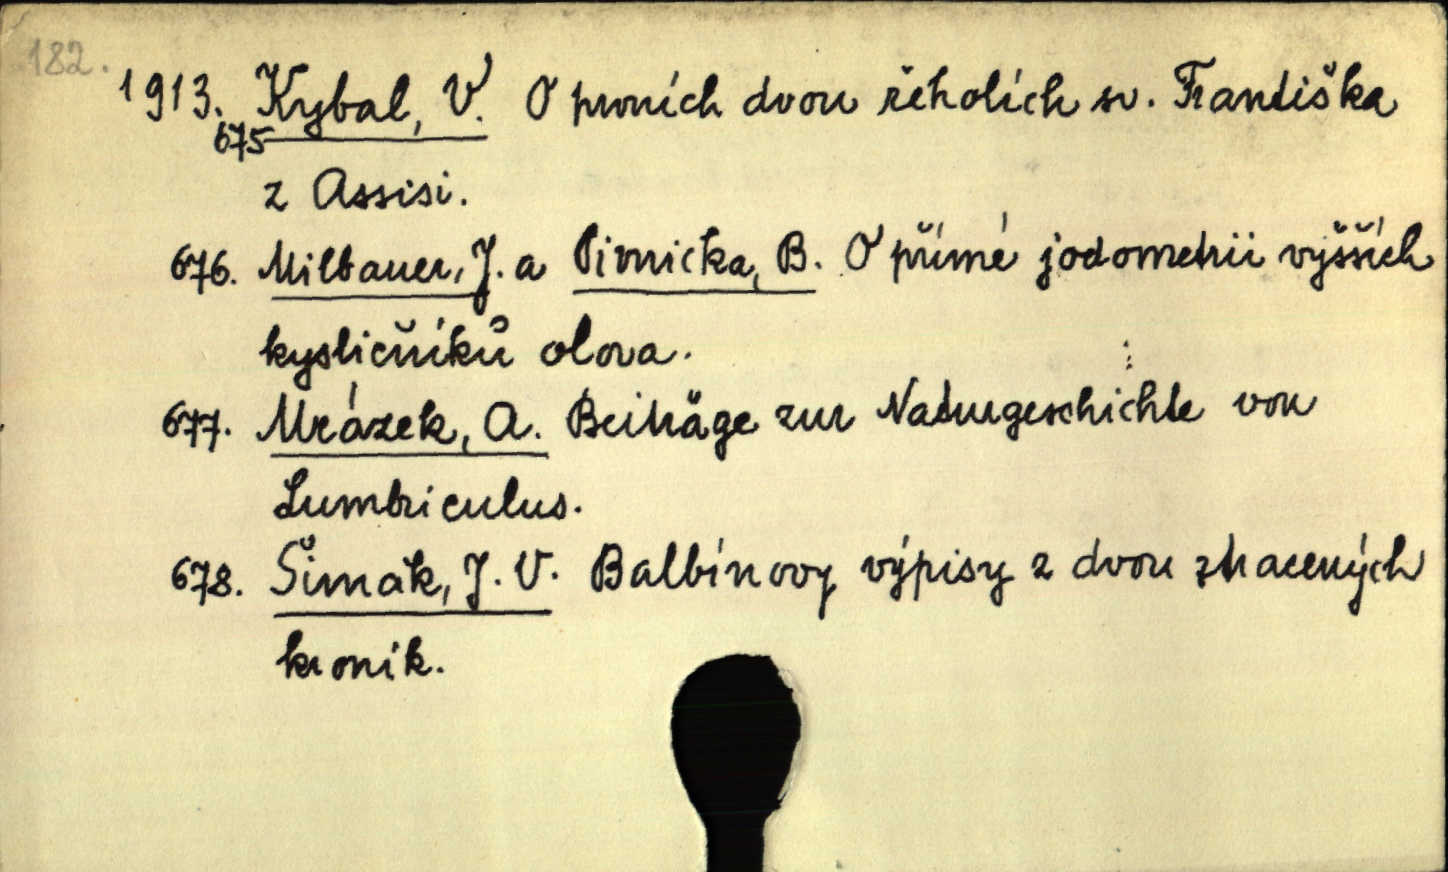 182.
1913. Kybal, V. O prvních dvou řeholích sv. Františka
675
z Assisi.
676. Milbauer, J. a Pivnička, B. O přímé jodometrii vyšších
kysličníků olova.
677. Mrázek, A. Beiträge zur Naturgeschichte von
Lumbriculus.
678. Šimák, J. V. Balbínovy výpisy z dvou ztracených
kronik.